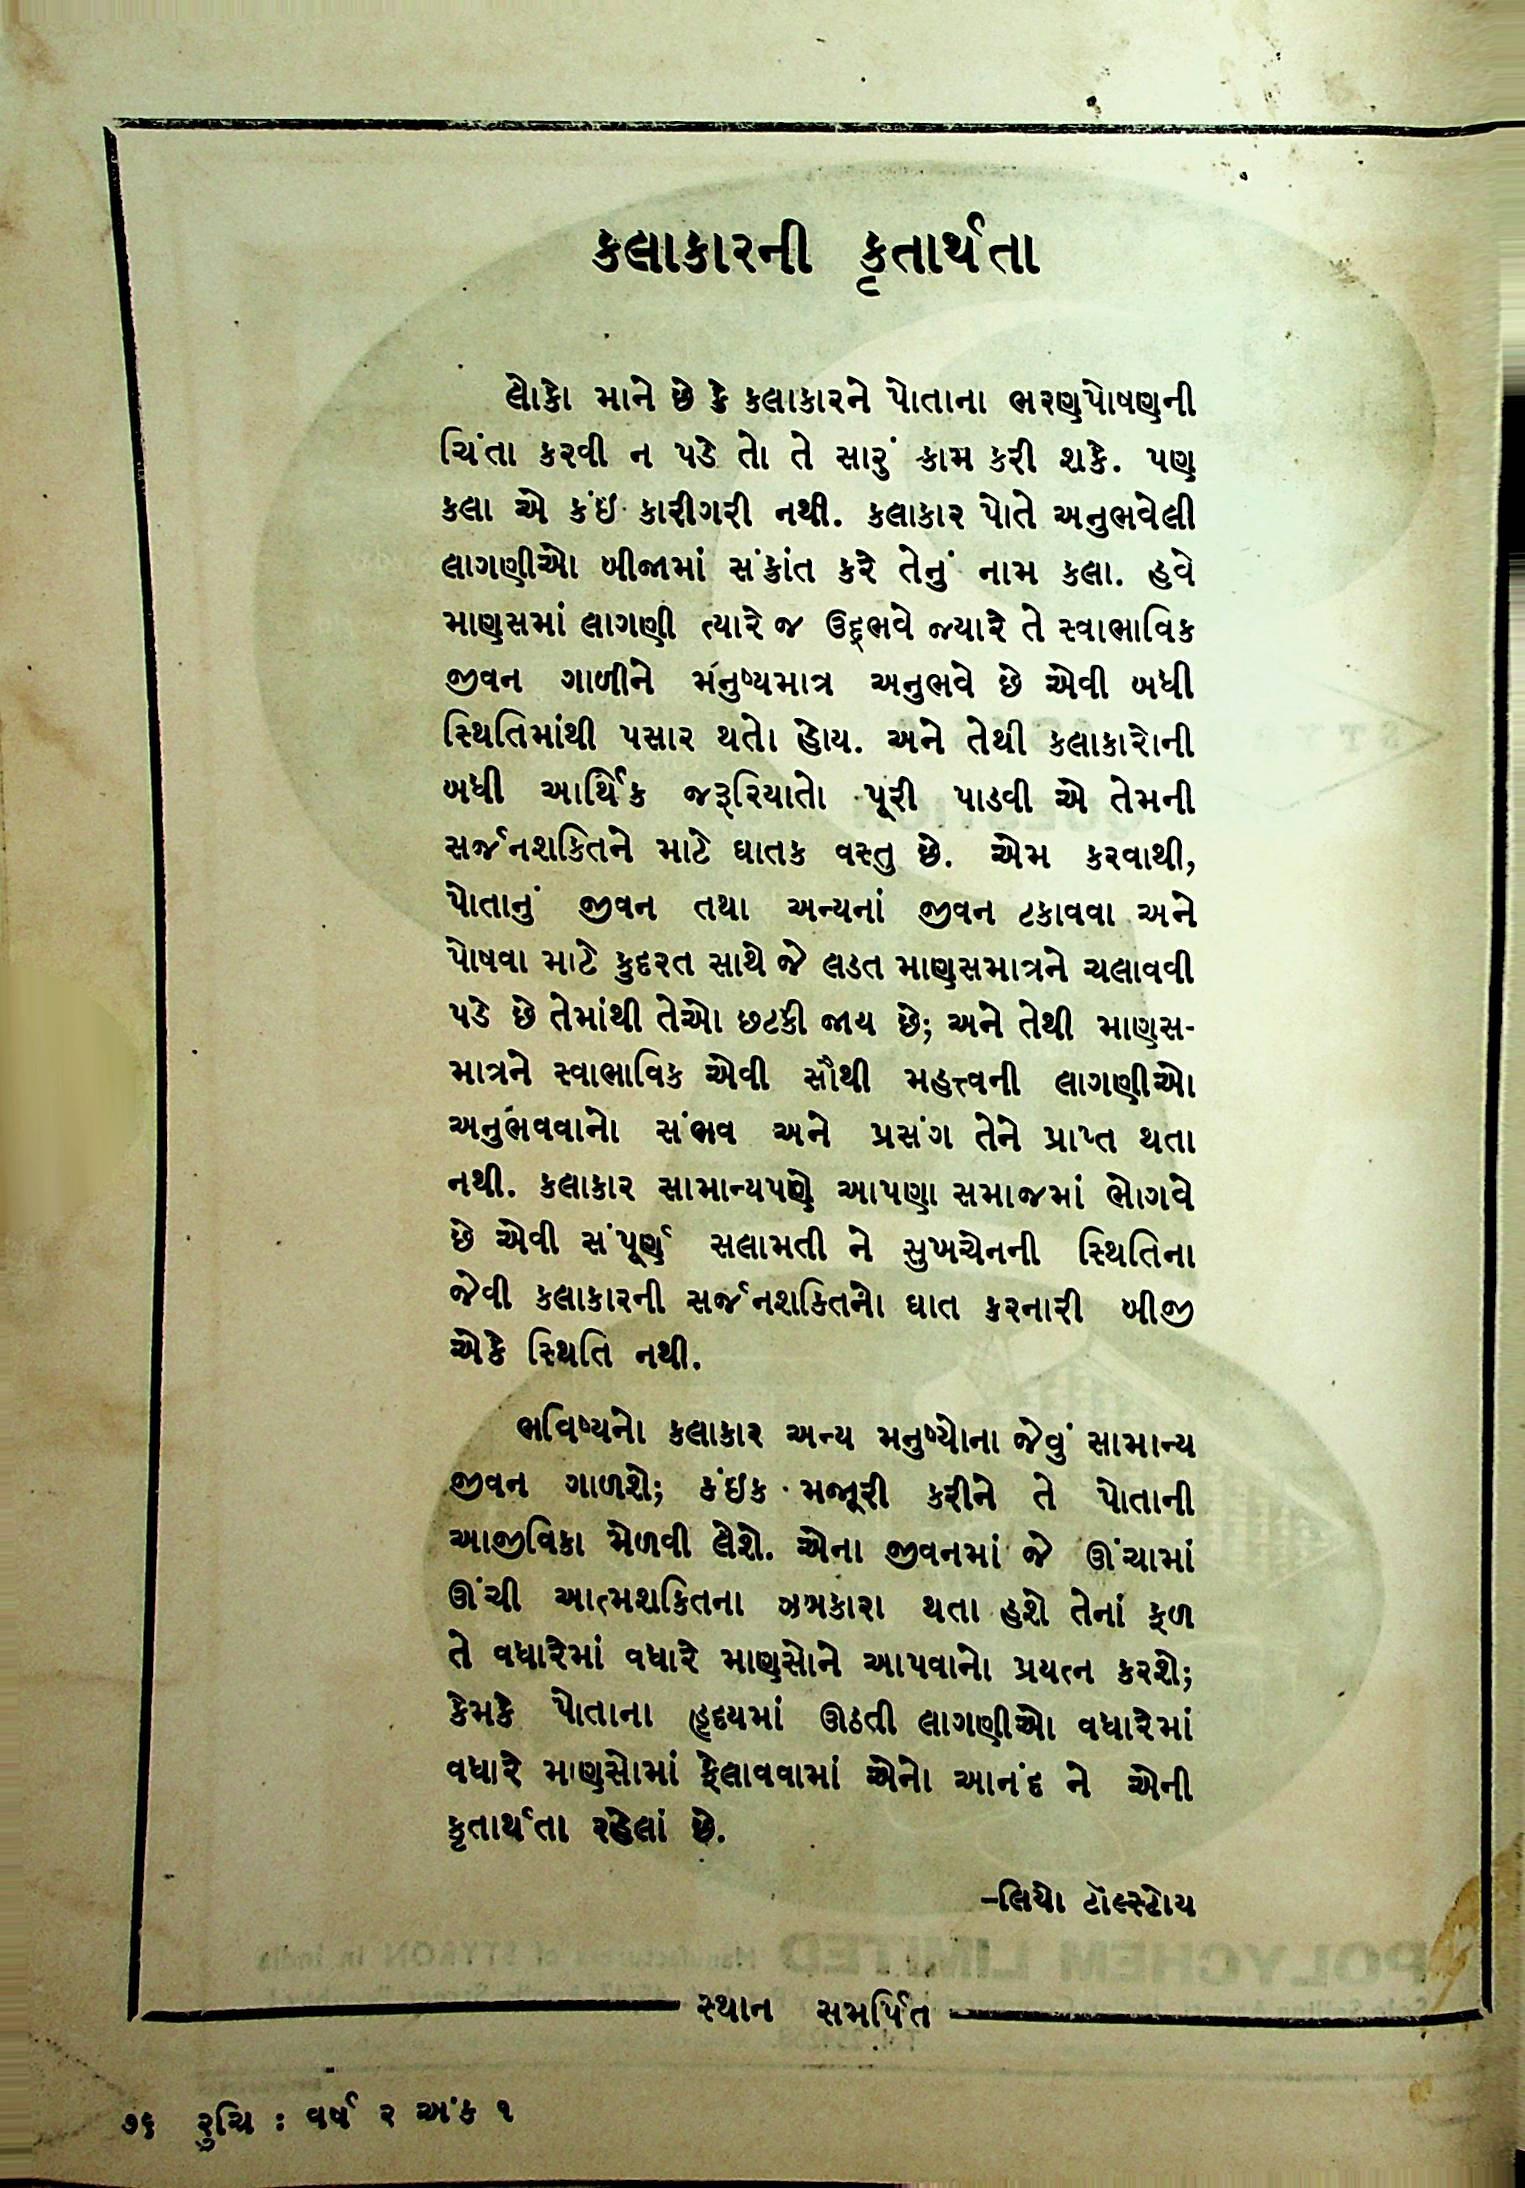 કલાકારની કૃતાર્થતા
લોકો માને છે કે કલાકારને પોતાના ભરણપોષણની
ચિંતા કરવી ન પડે તો તે સારું કામ કરી શકે. પણ
કલા એ કંઇ કારીગરી નથી. કલાકાર પોતે અનુભવેલી
લાગણીઓ બીજામાં સંક્રાંત કરે તેનું નામ કલા. હવે
માણસમાં લાગણી ત્યારે જ ઉદ્દભવે જ્યારે તે સ્વાભાવિક
જીવન ગાળીને મનુષ્યમાત્ર અનુભવે છે એવી બધી
સ્થિતિમાંથી પસાર થતો હોય. અને તેથી કલાકારોની
બધી આર્થિક જરૂરિયાતો પૂરી પાડવી એ તેમની
સર્જનશકિતને માટે ઘાતક વસ્તુ છે. એમ કરવાથી,
પોતાનું જીવન તથા અન્યનાં જીવન ટકાવવા અને
પોષવા માટે કુદરત સાથે જે લડત માણસમાત્રને ચલાવવી
પડે છે તેમાંથી તેઓ છટકી જાય છે; અને તેથી માણસ-
માત્રને સ્વાભાવિક એવી સૌથી મહત્ત્વની લાગણીઓ
અનુભવવાનો સંભવ અને પ્રસંગ તેને પ્રાપ્ત થતા
નથી. કલાકાર સામાન્યપણે આપણા સમાજમાં ભોગવે
છે એવી સંપૂર્ણ સલામતી ને સુખચેનની સ્થિતિના
જેવી કલાકારની સર્જનશકિતનો ઘાત કરનારી બીજી
એકે સ્થિતિ નથી.
ભવિષ્યનો કલાકાર અન્ય મનુષ્યોના જેવું સામાન્ય
જીવન ગાળશે; કંઇક મજૂરી કરીને તે પોતાની
આજીવિકા મેળવી લેશે. એના જીવનમાં જે ઊંચામાં
ઊંચી આત્મશકિતના ઝબકારા થતા હશે તેનાં ફળ
તે વધારેમાં વધારે માણસોને આપવાનો પ્રયત્ન કરશે;
કેમકે પોતાના હૃદયમાં ઊઠતી લાગણીઓ વધારેમાં
વધારે માણસોમાં ફેલાવવામાં એનો આનંદ ને એની
કૃતાર્થતા રહેલાં છે.
–લિયો ટૉલ્સ્ટોય
સ્થાન સમર્પિત
૭૬ રુચિ : વર્ષ ૨ અંક ૧